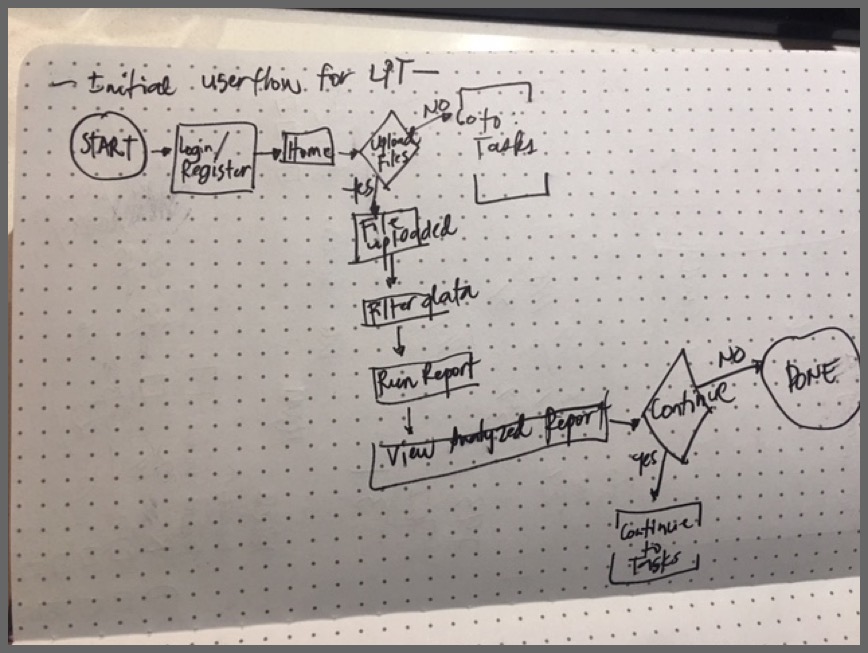 — Initial userflow for LPT —
START
Login/
Register
Home
Upload
Files
NO
Go to
Tasks
Yes
File
uploaded
Filter data
Run Report
View Analyzed Report
Continue
NO
DONE
yes
Continue
to
Tasks